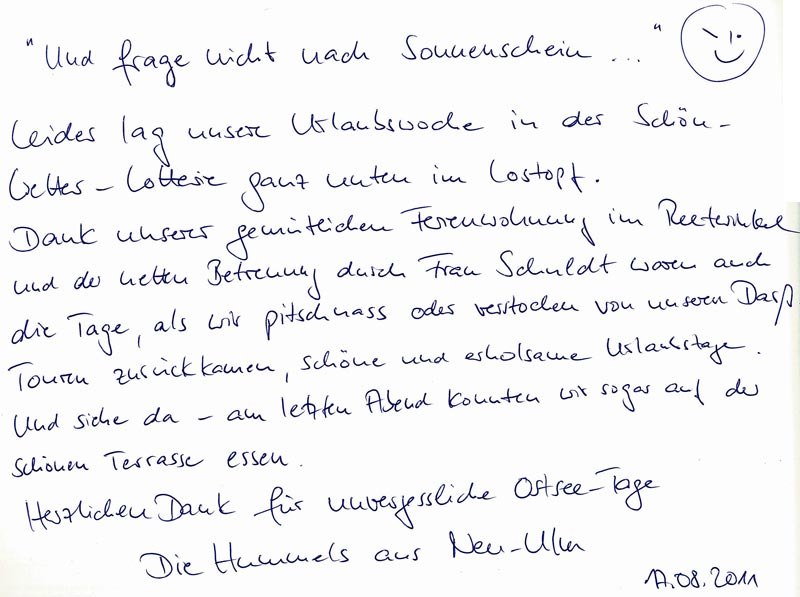 "Und frage nicht nach Sonnenschein ..."
Leider lag unsere Urlaubswoche in der Schön-
Wetter-Lotterie ganz unten im Lostopf.
Dank unserer gemütlichen Ferienwohnung im
und der netten Betreuung durch Frau Schuldt waren auch
die Tage, als wir pitschnass oder verstochen von unseren Darß
Touren zurückkamen, schöne und erholsame Urlaubstage.
Und siehe da - am letzten Abend konnten wir sogar auf der
schönen Terrasse essen.
Herzlichen Dank für unvergessliche Ostsee-Tage
Die Hummels aus Neu-Ulm
17.08.2011